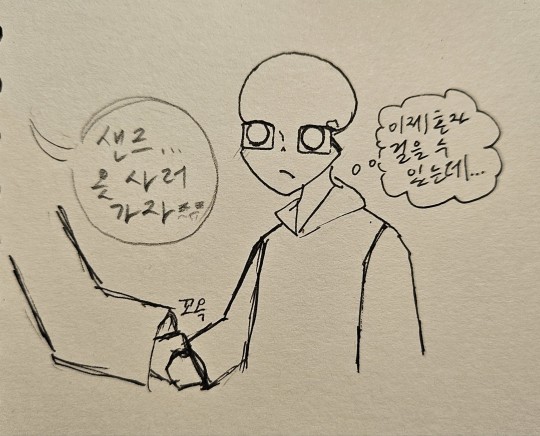 샌즈...
옷 사러
가자ㅎㅎ
이제 혼자
걸을 수
있는데...
꼬옥